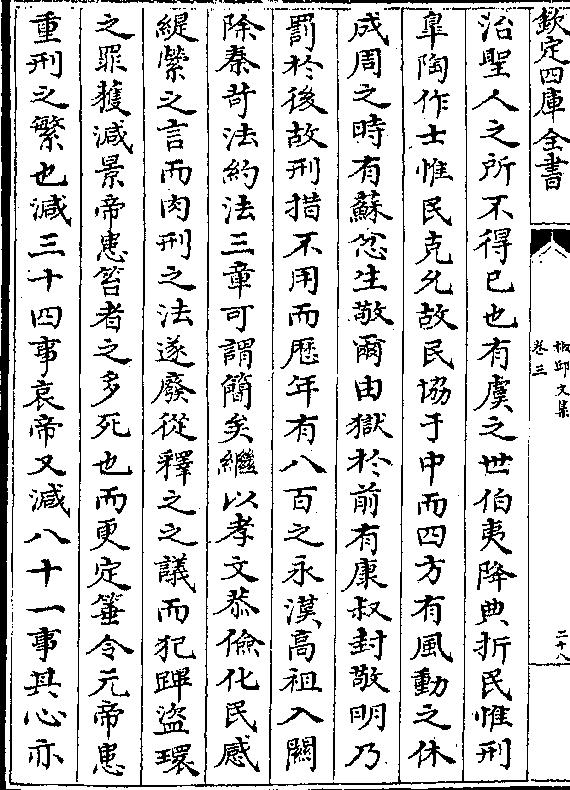 欽定四庫全書
椒邱文集
卷三
二十八
治聖人之所不得已也有虞之世伯夷降典折民惟刑
臯陶作士惟民克允故民協于中而四方有風動之休
成周之時有蘇忿生敬爾由獄於前有康叔封敬明乃
罰於後故刑措不用而歴年有八百之永漢高祖入關
除秦苛法約法三章可謂簡矣繼以孝文恭儉化民感
緹縈之言而肉刑之法遂廢從釋之之議而犯蹕盜環
之罪獲減景帝患笞者之多死也而更定箠令元帝患
重刑之繁也減三十四事哀帝又減八十一事其心亦